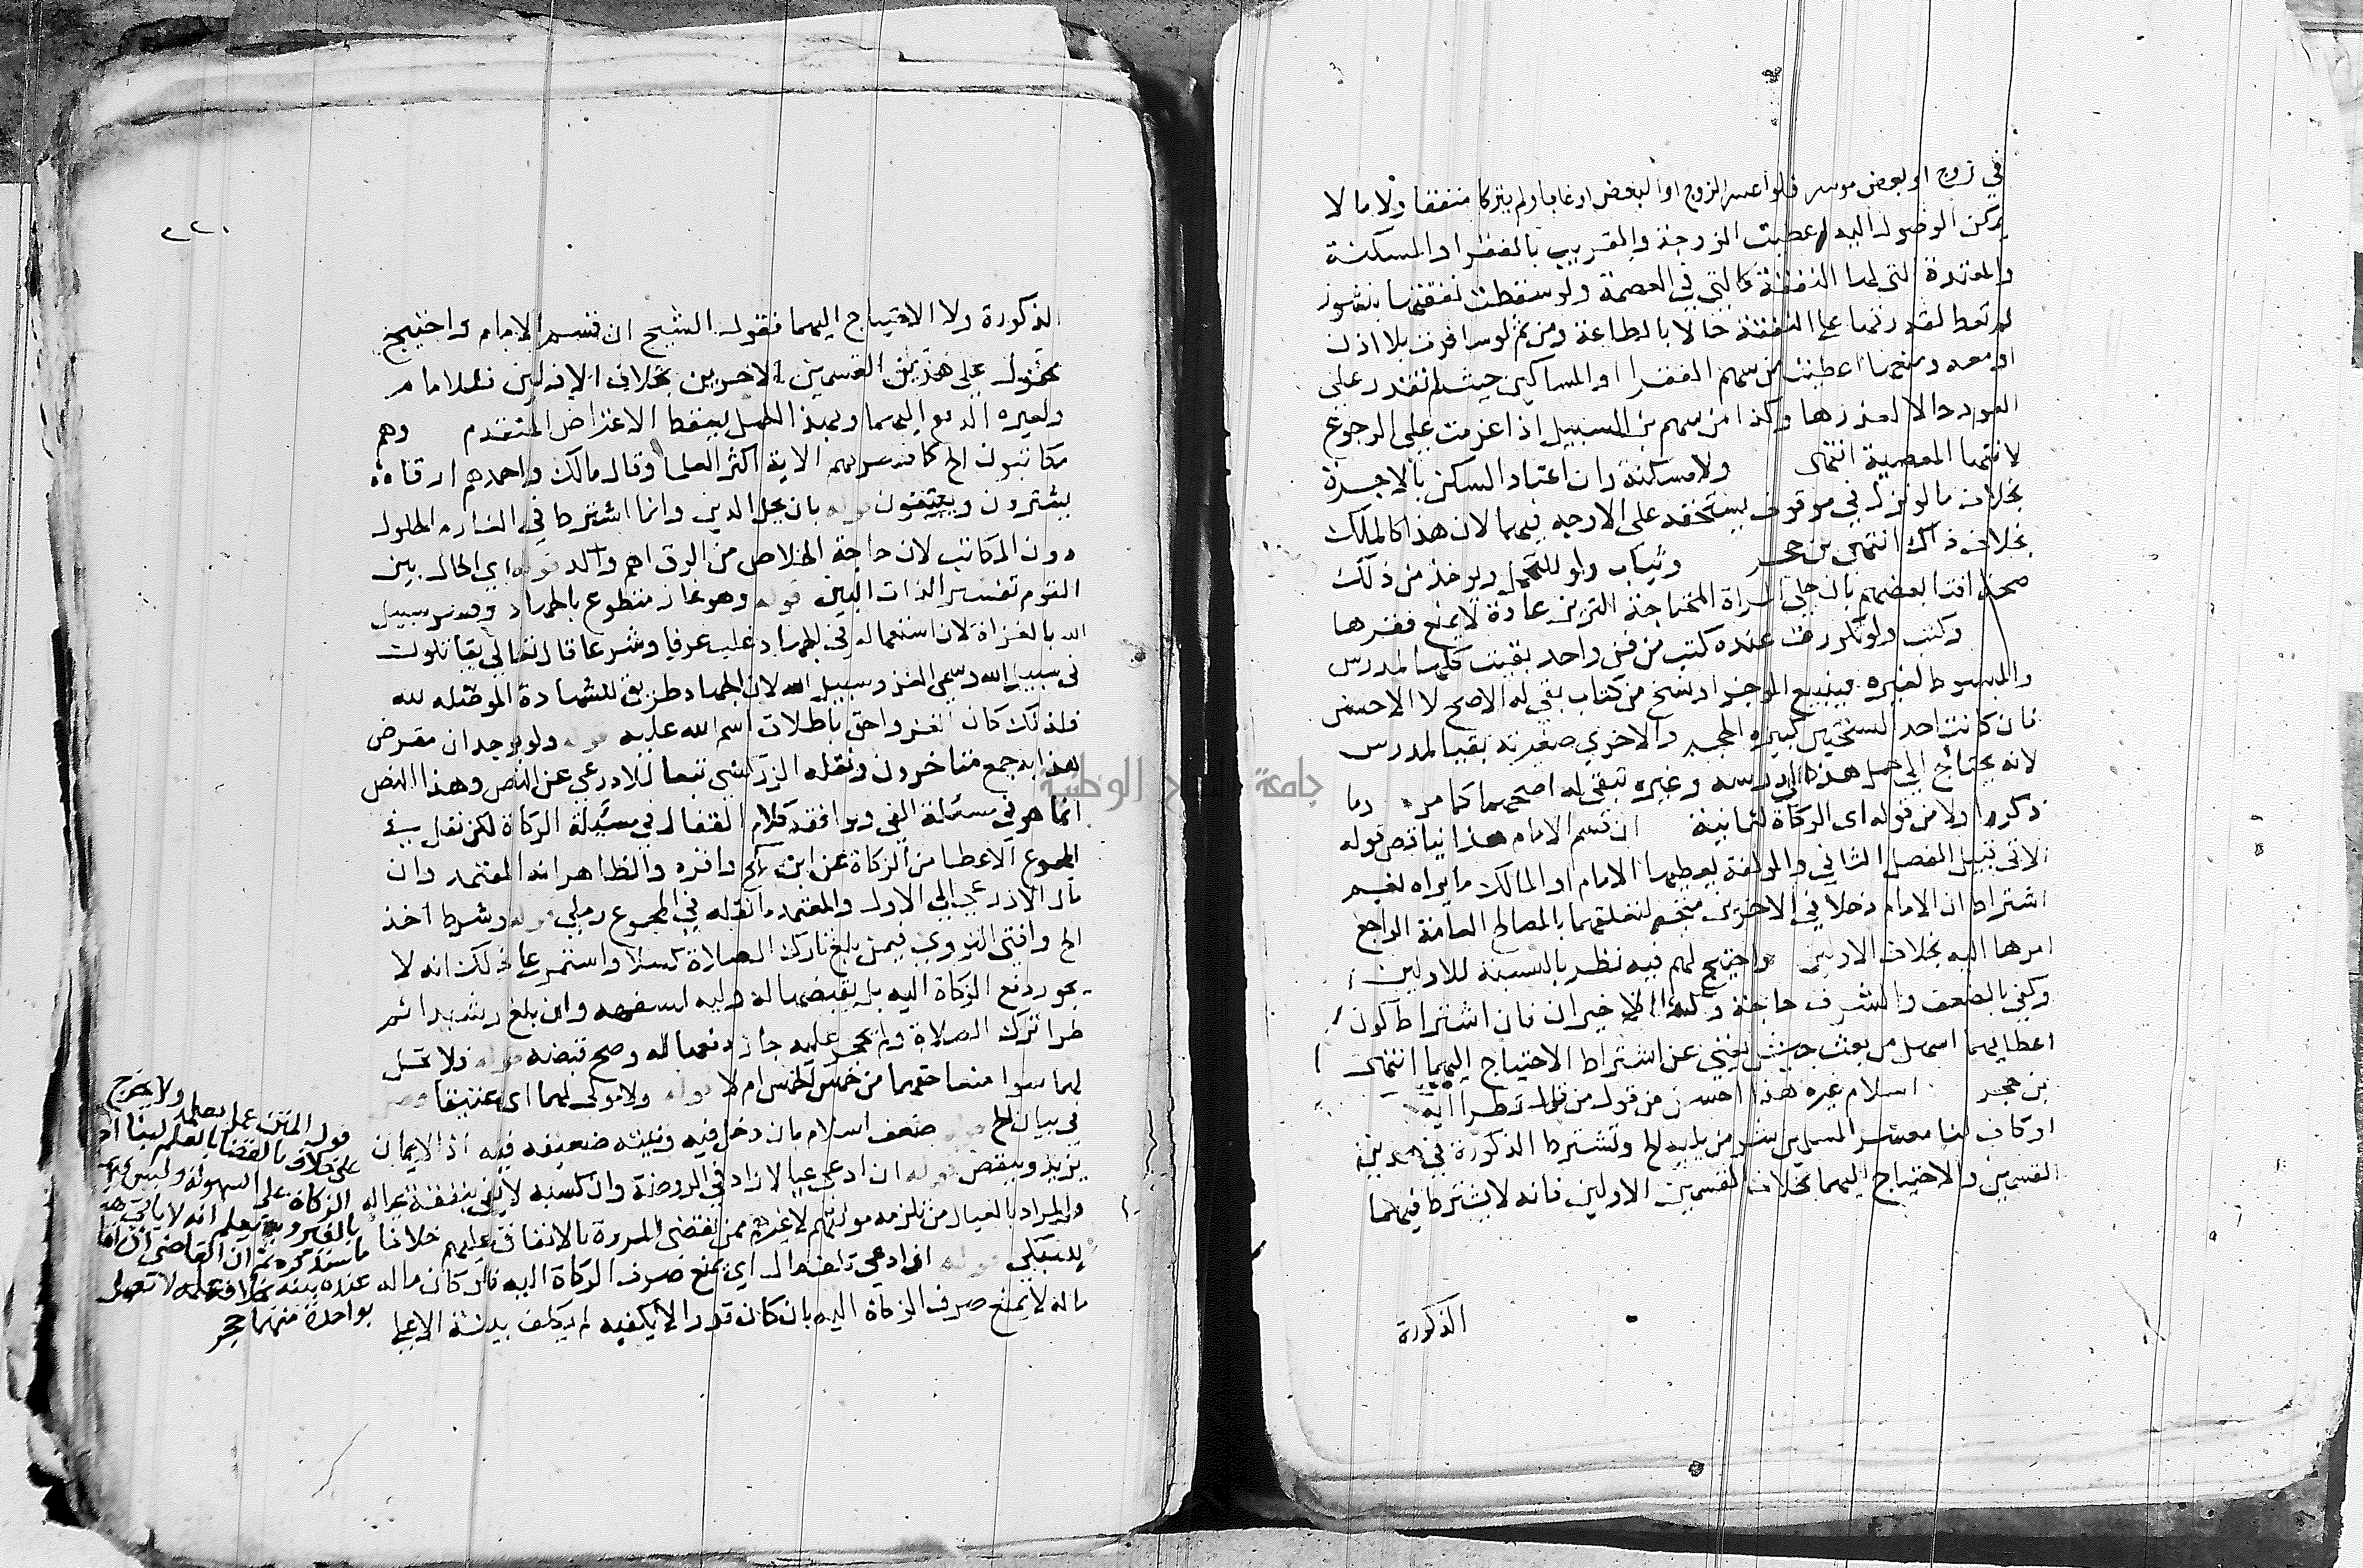 في زوج او بعض موسر فلو اعسر الزوج او البعض او غابا ولم يتركا منفقا ولا مالا
يمكن الوصول اليه اعطيت الزوجة والقريب بالفقر او المسكنة
والمعتدة التي لها النفقة كالتي في العصمة ولو سقطت نفقتها بنشوز
لم تعط لقدرتها على النفقة حالا بالطاعة ومن ثم لو سافرت بلا اذن
او معه ومنعها اعطيت من سهم الفقرا او المساكين حيث لم تقدر على
العود حالا لعذرها وكذا من سهم بن السبيل اذا عزمت على الرجوع
لانتها المعصية انتهى ولا مسكنه وان اعتاد السكن بالاجرة
بخلاف ما لو نزل في موقوف يستحقه على الاوجه فيهما لان هذا كالملك
بخلاف ذاك انتهى بن حجر وثيابه ولو للتجمل ويوخذ من ذلك
صحة افتا بعضهم بان حلي المراة المحتاجة التزين عادة لا يمنع فقرها
وكتب ولو تكررت عنده كتب من فن واحد بقيت كلها لمدرس
والمبسوط لغيره فيبيع الموجز او نسخ من كتاب بقي له الاصح لا الاحسن
فان كانت احد النسختين كبيرة الحجم والاخري صغيرته بقيا لمدرس
لانه يحتاج الي حمل هذه الي درسه وغيره تبقي له اصحهما كما مر وما
ذكر اولا من قوله اى الزكاة لثمانية ان قسم الامام هذا يناقض قوله
الاتي قبيل الفصل الثاني والمولفة يعطيها الامام او المالك ما يراه نعم
اشتراط ان الامام دخلا في الاخرين متجه لتعلقهما بالمصالح العامة الراجع
امرها اليه بخلاف الاولين واحتيج لهم فيه نظر بالنسبة للاولين
وكفي بالضعف والشرف حاجة وكذا الاخيران فان اشتراط كون
اعطايهما اسهل من بعث جيش يغني عن اشتراط الاحتياج اليهما انتهى
بن حجر اسلام غيره هذا احسن من قول من قال نظرائه
او كاف لنا معشر المسلمين شر من يليه الخ وتشترط الذكورة في هذين
القسمين والاحتياج اليهما بخلاف القسمين الاولين فانه لا يشترط فيهما
الذكورة
٢٢٠
الذكورة ولا الاحتياج اليهما فقول الشيخ ان قسم الامام واحتيج
محمول على هذين القسمين الاخرين بخلاف الاولين فللامام
ولغيره الدفع اليهما وبهذا الحمل يسقط الاعتراض المتقدم وهم
مكاتبون الخ كما فسر بهم الاية اكثر العلما وقال مالك واحمد هم ارقاء
يشترون ويعتقون قوله بان يحل الدين وانما اشترط في الغارم الحلول
دون المكاتب لان حاجة الخلاص من الرق اهم والد قوله اي الحال بين
القوم تفسير لذات البين قوله وهو غاز متطوع بالجهاد وفسر سبيل
الله بالغزاة لان استعماله في الجهاد غلب عرفا وشرعا قال تعالي يقاتلون
في سبيل الله وسمي الغزو سبيل الله لان الجهاد طريق للشهادة الموصله لله
فلذلك كان الغزو احق باطلاق اسم الله عليه قوله ولو وجد ان مقرض
هذا به جمع متاخرون ونقله الزركشي تبعا للاذرعي عن النص وهذا النص
انما هو في مسئلة الفي ويوافقه كلام القفال في مسئلة الزكاة لكن نقل في
المجموع الاعطا من الزكاة عن ابن كج واقره والظاهر انه المعتمد وان
مال الاذرعي الي الاول والمعتمد ما نقله في المجموع رملي قوله وشرط اخذ
الخ وافتى النووي فيمن بلغ تارك الصلاة كسلا واستمر على ذلك انه لا
يجوز دفع الزكاة اليه بل يقبضها له وليه لسفهه وان بلغ رشيدا ثم
طرا ترك الصلاة ولم يحجر عليه جاز دفعها له وصح قبضه قوله ولا تحل
لهما سوا منعا حقهما من خمس الخمس ام لا قوله ولا مولى لهما اى عتيقا
في بيان الخ قوله ضعف اسلام بان دخل فيه ونيته ضعيفه فيه اذ الايمان
يزيد وينقص قوله ان ادعى عيالا زاد في الروضة وان كسبه لا يفي بنفقة عياله
والمراد بالعيال من تلزمه مونتهم لا غيرهم ممن تقتضى المروة بالانفاق عليهم خلافا
للسبكي قوله او ادعى تلف مال اي يمنع صرف الزكاة اليه فان كان ماله
ماله لا يمنع صرف الزكاة اليه بان كان قدرا لا يكفيه لم يكلف بينة الا على
قول المتن عمل بعلمه ولا يخرج
على خلاف القضا بالعلم لبنا امر
الزكاة على السهولة وليس
بالفقر وبه يعلم انه لا ياتي هنا
ما سنذكره ثم ان القاضي
عنده بينه بخلاف علمه لا تعمل
بواحدة منهما حجر
جامعة الوطنية